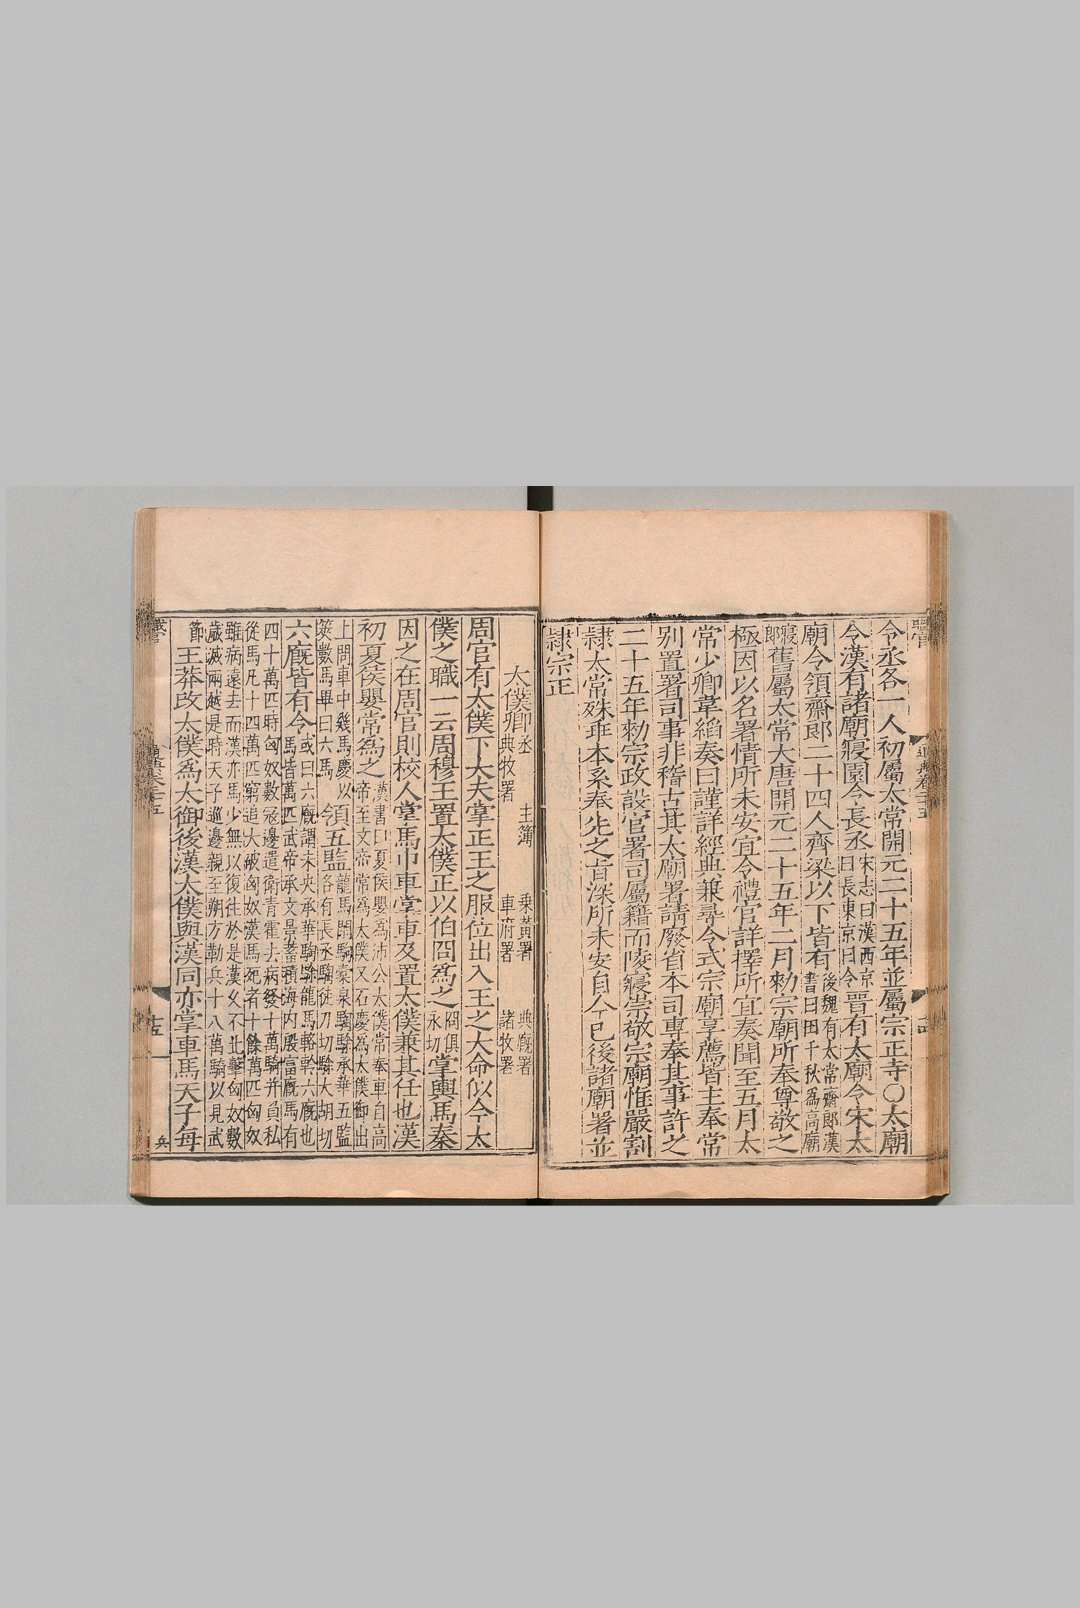 令丞各一人初屬太常開元二十五年並屬宗正寺○太廟
令漢有諸廟寢園令長丞宋志曰漢西京曰長東京曰令晉有太廟令宋太
廟令領齋郎二十四人齊梁以下皆有後魏有太常齋郎漢書曰田千秋為高廟
寢郎舊屬太常大唐開元二十五年二月勑宗廟所奉尊敬之
極因以名署情所未安宜令禮官詳擇所宜奏聞至五月太
常少卿韋縚奏曰謹詳經典兼尋令式宗廟享薦皆主奉常
別置署司事非稽古其太廟署請廢省本司專奉其事許之
二十五年勑宗政設官署司屬籍而陵寢崇敬宗廟惟嚴割
隸太常殊乖本系奉先之旨深所未安自今已後諸廟署並
隸宗正
太僕卿丞 主簿 乘黃署 典廐署
典牧署 車府署 諸牧署
周官有太僕下大夫掌正王之服位出入王之大命似今太
僕之職一云周穆王置太僕正以伯冏為之冏俱永切掌輿馬秦
因之在周官則校人掌馬巾車掌車及置太僕兼其任也漢
初夏侯嬰常為之漢書曰夏侯嬰為沛公太僕常奉車自高帝至文帝常為太僕又石慶為太僕御出
上問車中幾馬慶以筴數馬畢曰六馬領五監各有長丞龍馬閑駒橐泉騊駼承華五監
六廐皆有令或曰六廐謂未央承華騊駼龍馬輅軨六廐也馬皆萬匹武帝承文景蓄積海內殷富廐馬有
四十萬匹時匈奴數寇邊遣衛青霍去病發十萬騎并負私
從馬凡十四萬匹窮追大破匈奴漢馬死者十餘萬匹匈奴
雖病遠去而漢亦馬少無以復往於是漢久不北擊匈奴數
歲滅兩越是時天子巡邊親至朔方勒兵十八萬騎以見武
節王莽改太僕為太御後漢太僕與漢同亦掌車馬天子每
十五
兵